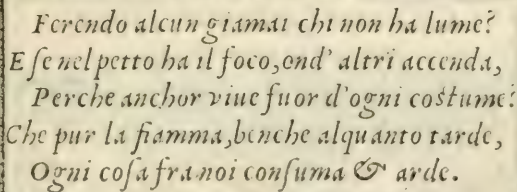 Ferendo alcun giamai chi non ha lume?
E ſe nel petto ha il foco, ond' altri accenda,
Perche anchor viue fuor d'ogni coſtume?
Che pur la fiamma, benche alquanto tarde,
Ogni coſa fra noi conſuma & arde.